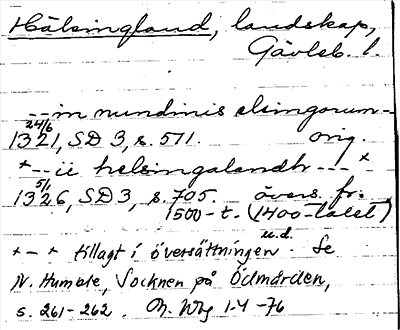 Hälsingland, landskap,
Gävleb. l.
--in nundinis elsingorum--
24/6
1321, SD 3, s. 571. orig.
+--ii helsingalandh---+
5/1
1326, SD 3, s. 705. övers. fr.
1500-t. (1400-talet)
u.d.
+-+ tillagt i översättningen. Se
N. Humble, Socknen på Ödmården,
s. 261-262. 1.4-76